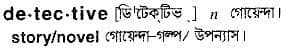 de·tec·tive [ডি'টেক্‌টিভ্‌] n গোয়েন্দা।
story/novel গোয়েন্দা-গল্প/ উপন্যাস।